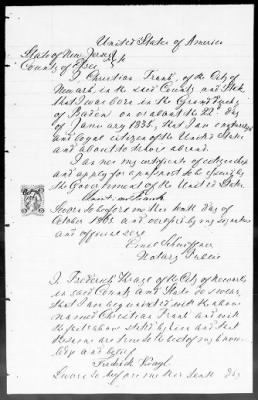 United States of America
State of New Jersey
County of Essex
I Christian Frank, of the City of
Newark, in the said County and State
that I was born in the Grand Duchy
of Baden on or about the 22d day
of January 1835, that I am a
and legal citizen of the United States
and about to travel abroad.
I has my certificate of
and apply for a passport to be issued by
the Government of the United States
Christian Frank
Sworn to before me this tenth day of
October 1865 and certified by my signature
and official seal
Notary Public
I Frederick of the City of Newark
in said County and State do swear
that I am acquainted with the above
named Christian Frank and with
the facts above stated by him and that
the same are true to the best of my know
ledge and belief
Frederick
Sworn to before me this tenth day